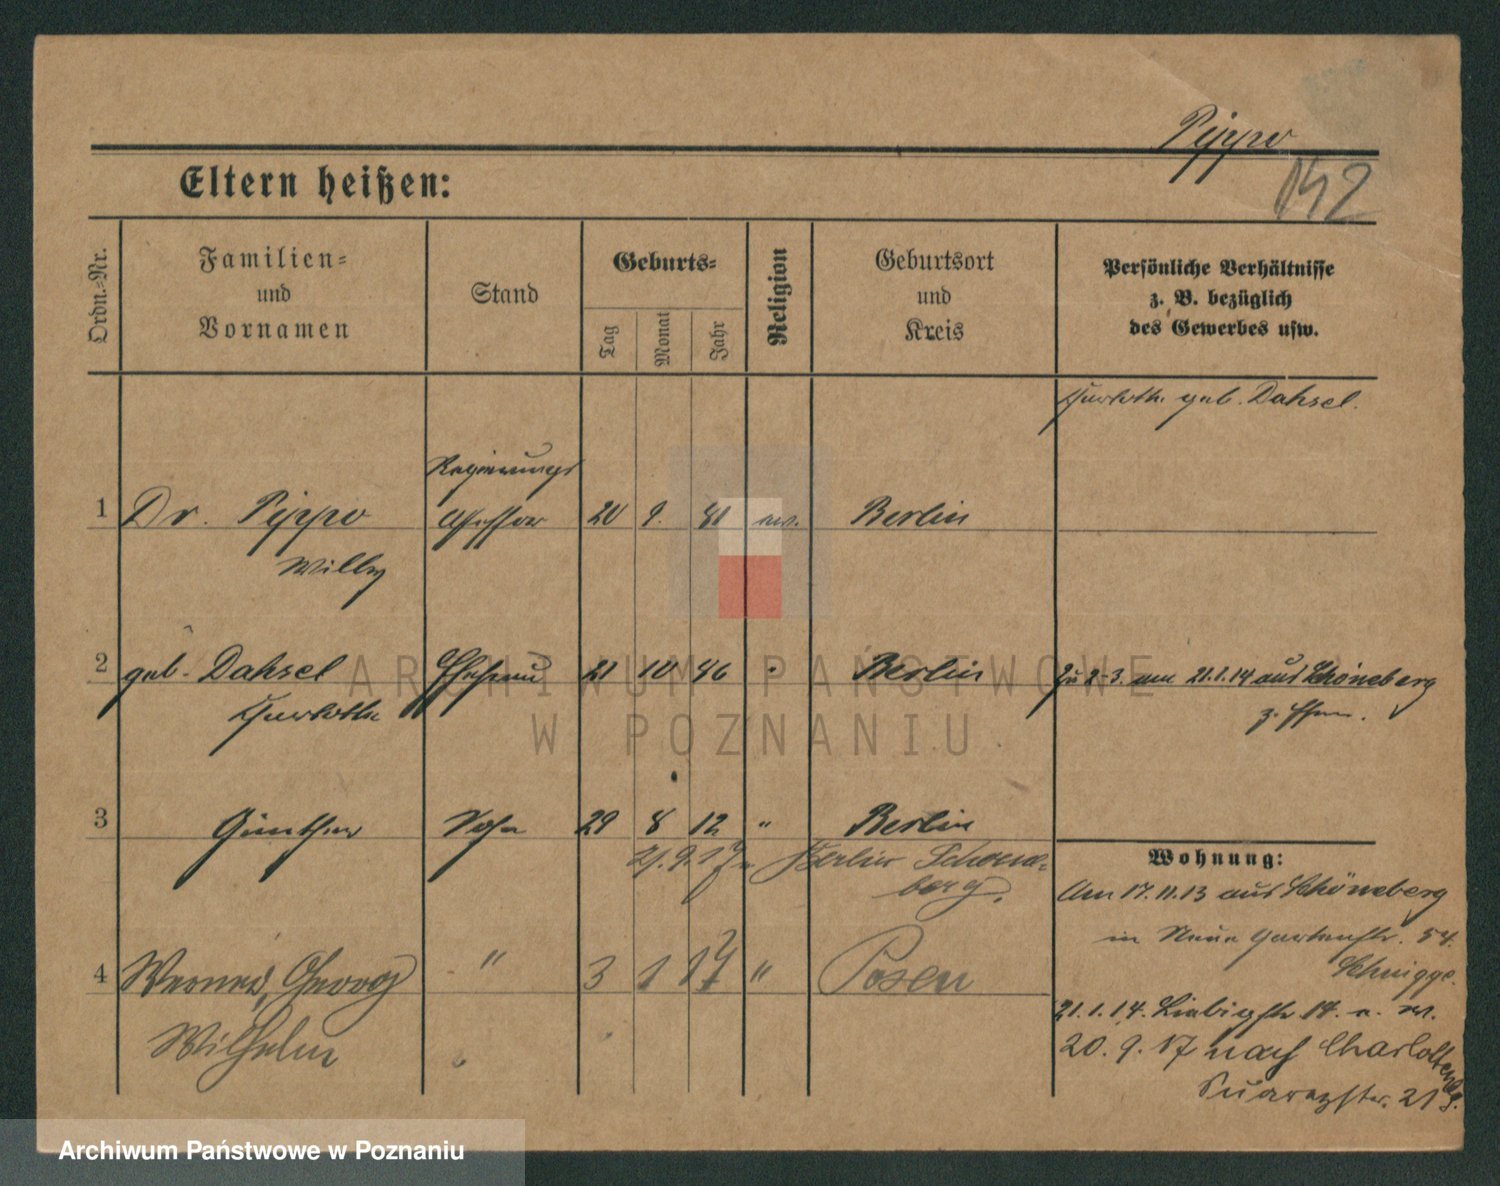 Pippo
142
Eltern heißen:
Ordn.-Nr.
Familien-
und
Vornamen
Stand
Geburts-
Tag
Monat
Jahr
Religion
Geburtsort
und
Kreis
Persönliche Verhältnisse
z. B. bezüglich
des Gewerbes usw.
geb. Dahsel.
Regierungs
1 Dr. Pippo Assessor 20 9. 81 ev. Berlin
Willy
2 geb. Dahsel Ehefrau 21 10 Berlin Zu 2-3. am 21.1.14 aus Schöneberg
z. Ehem.
3 Günther Sohn 29 8 12 " Berlin
Wohnung:
Berlin Schöne-
berg.
Am 17.11.13 aus Schöneberg
in Neue Gartenstr. 54.
4 Werner, Georg " 3 1 17 " Posen
Wilhelm
21.1.14. Liebigstr 14.
20.9.17 nach Charlottenbg.
Suarezstr. 21
ARCHIWUM PAŃSTWOWE
W POZNANIU
Archiwum Państwowe w Poznaniu